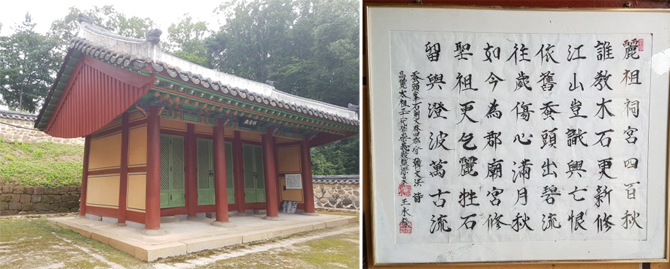 麗祖祠宮四百秋
誰教木石更新修
江山豈識興亡恨
依舊蚕頭出碧流
往歲傷心滿月秋
如今為郡廟宮修
聖祖更乞麗牲石
留與澄波萬古流
蚕頭峯石刻文
高麗太祖